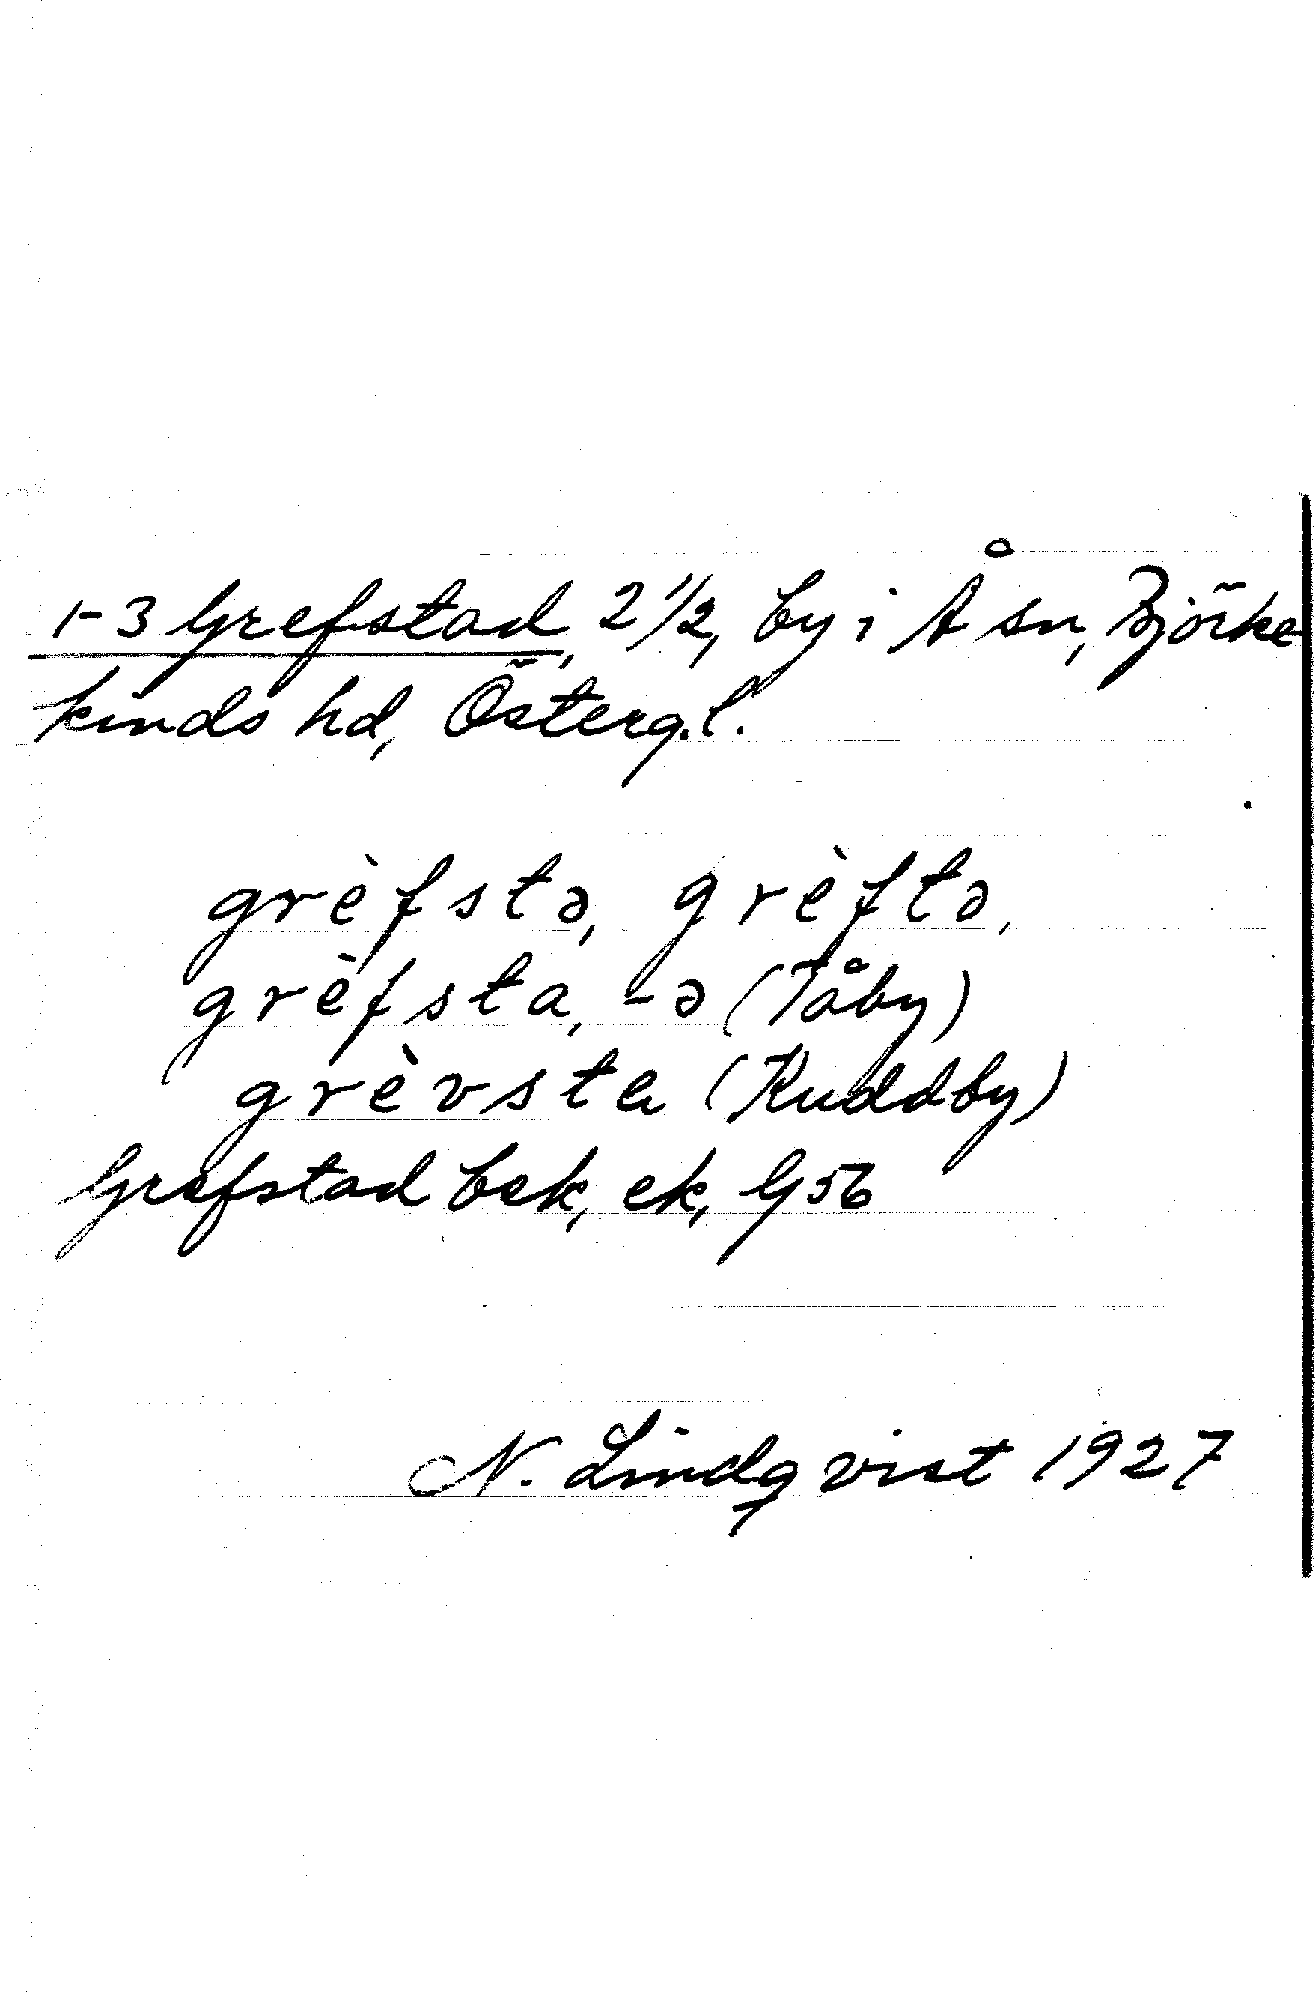 1-3 Grefstad, 2 1/2, by i Å sn, Björke
kinds hd, Östergl.
grèfstə, grèftə,
grèfsta, -ə (Tåby)
grèvsta (Kuddby)
Grefstad bek, ek, G56
N. Lindqvist 1927